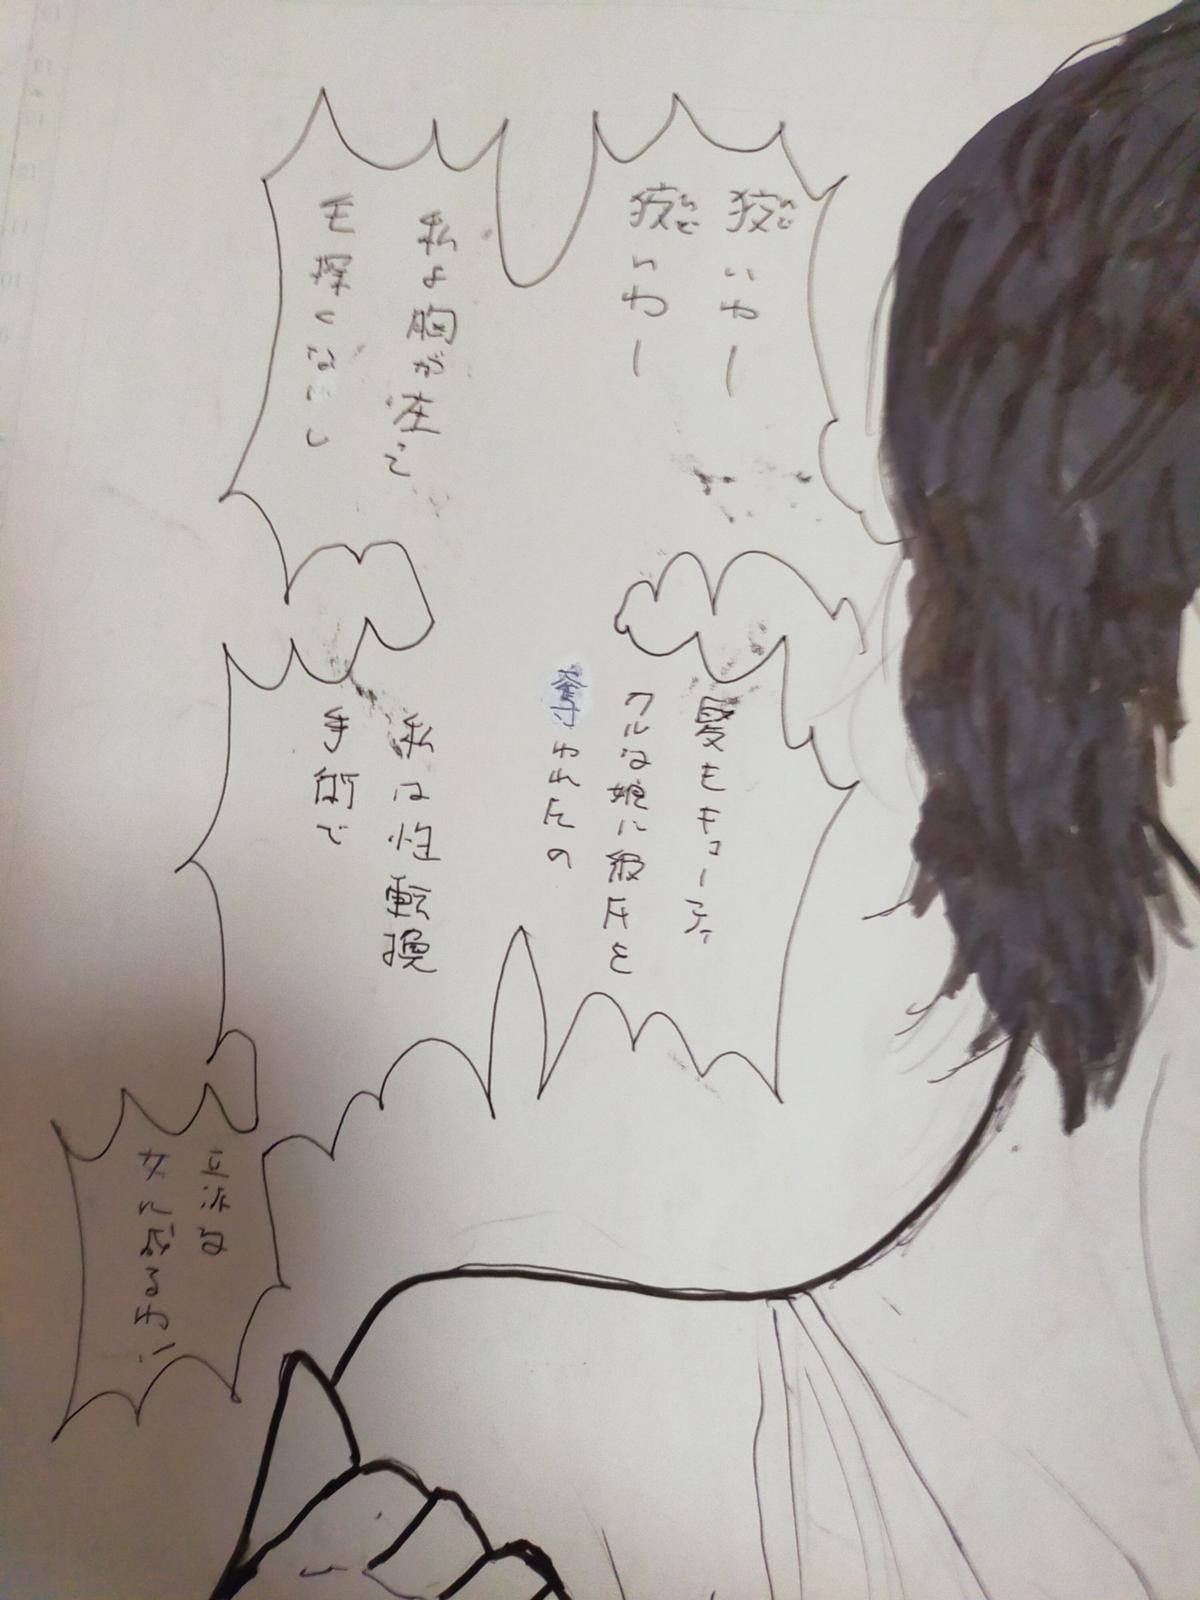 狡いわー
狡いわー
私よ胸が在って
毛深くないし
髪もキューティ
クルな娘に彼氏を
奪われたの
私は性転換
手術で
立派な
女に成るわ!!